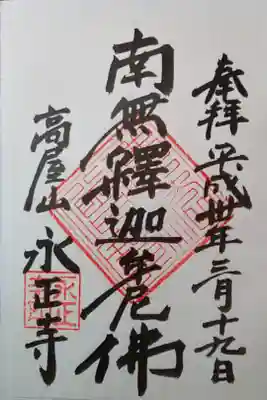 奉拝 平成卅年 三月十九日
南無釋迦牟尼佛
高屋山
永正寺